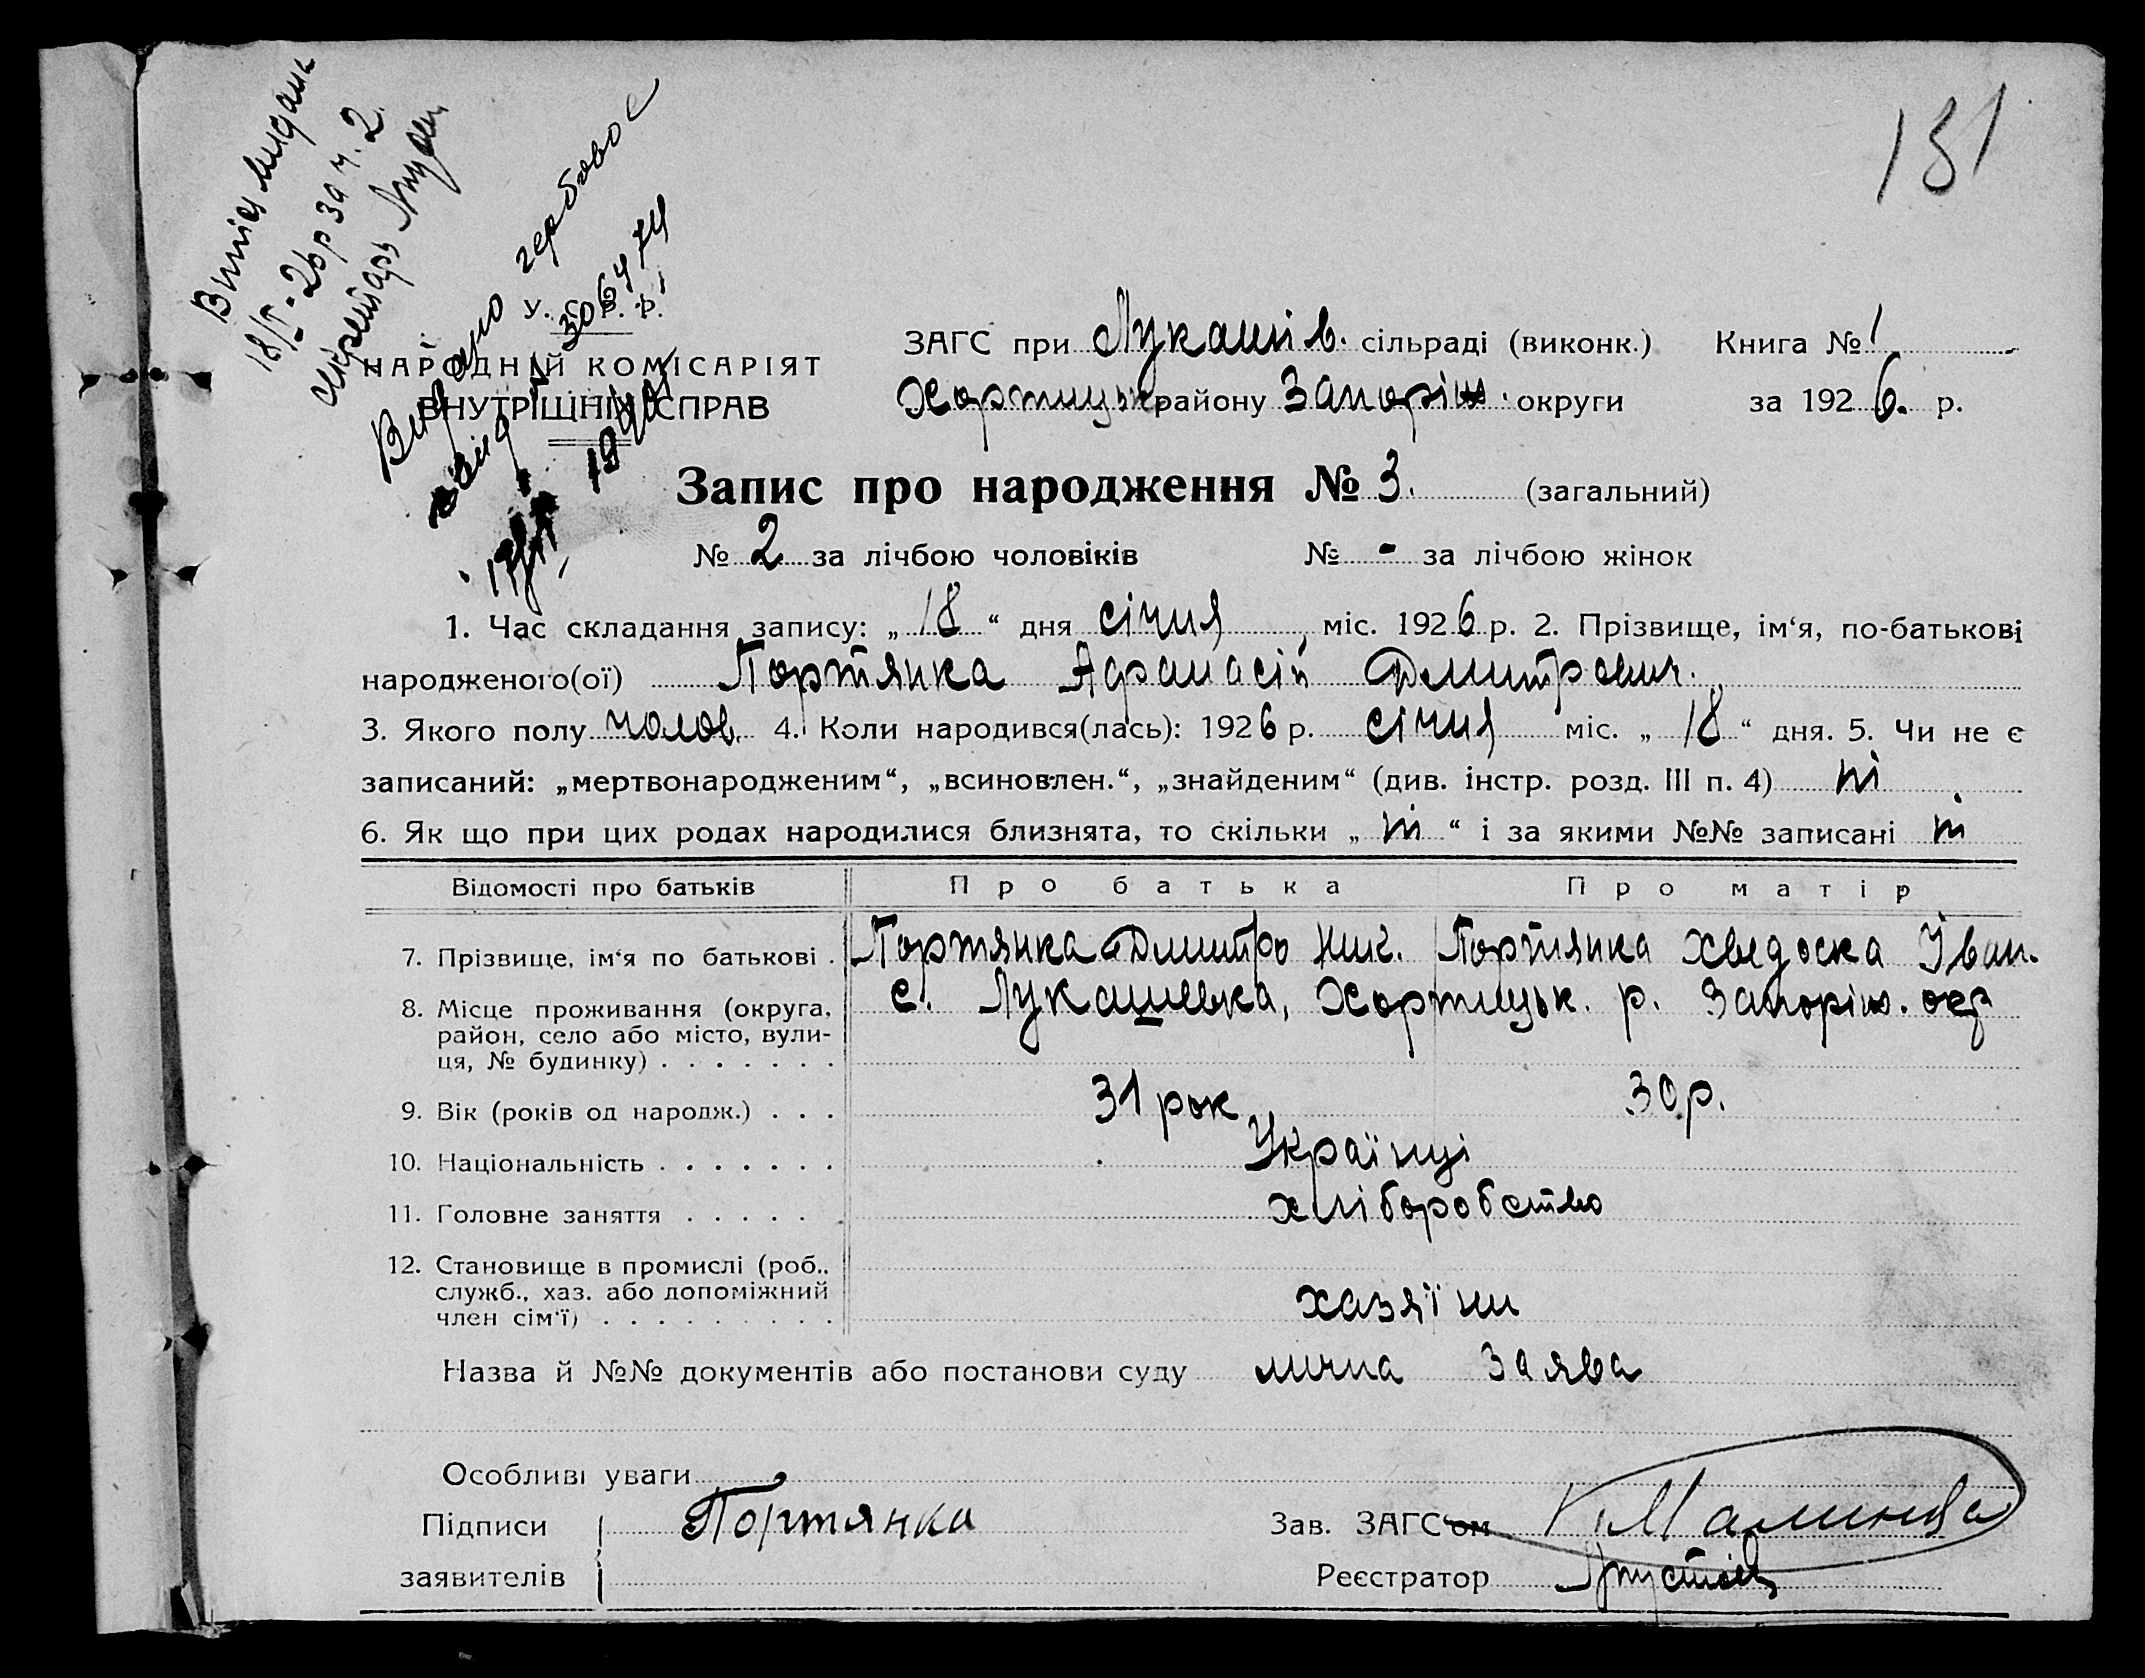 131
Витяг видань
18/I-26р за ч. 2
секретарь
Видано гербовое
У. С. Р. Р.
НАРОДНІЙ КОМІСАРІЯТ
ВНУТРІШНІХ СПРАВ
ЗАГС при Лукашів. сільраді (виконк.) Книга № 1
Хортицьк. району Запоріж. округи за 1926. р.
Запис про народження № 3. (загальний)
№ 2 за лічбою чоловіків № - за лічбою жінок
1. Час складання запису: „18“ дня січня міс. 1926 р. 2. Прізвище, ім‘я, по-батькові
народженого(ої) Портянка Афанасій Дмитрович.
3. Якого полу чолов. 4. Коли народився(лась): 1926 р. січня міс. „18“ дня. 5. Чи не є
записаний: „мертвонародженим“, „всиновлен.“, „знайденим“ (див. інстр. розд. III п. 4) ні
6. Як що при цих родах народилися близнята, то скільки „ні“ і за якими №№ записані ні
Відомості про батьків Про батька Про матір
7. Прізвище, ім‘я по батькові . Портянка Дмитро Ник. Портянка Хведоска Іван.
8. Місце проживання (округа, с. Лукашевка, Хортицьк. р. Запоріж. окр
район, село або місто, вули-
ця, № будинку) . . . . . . .
9. Вік (років од народж.) . . . 31 рок 30 р.
10. Національність . . . . . . . Українці
11. Головне заняття . . . . . хліборобство
12. Становище в промислі (роб..
служб., хаз. або допоміжний хазяїни
член сім‘ї) . . . . . . . . .
Назва й №№ документів або постанови суду лична заява
Особливі уваги
Підписи Портянка Зав. ЗАГС‘ом
заявителів Реєстратор